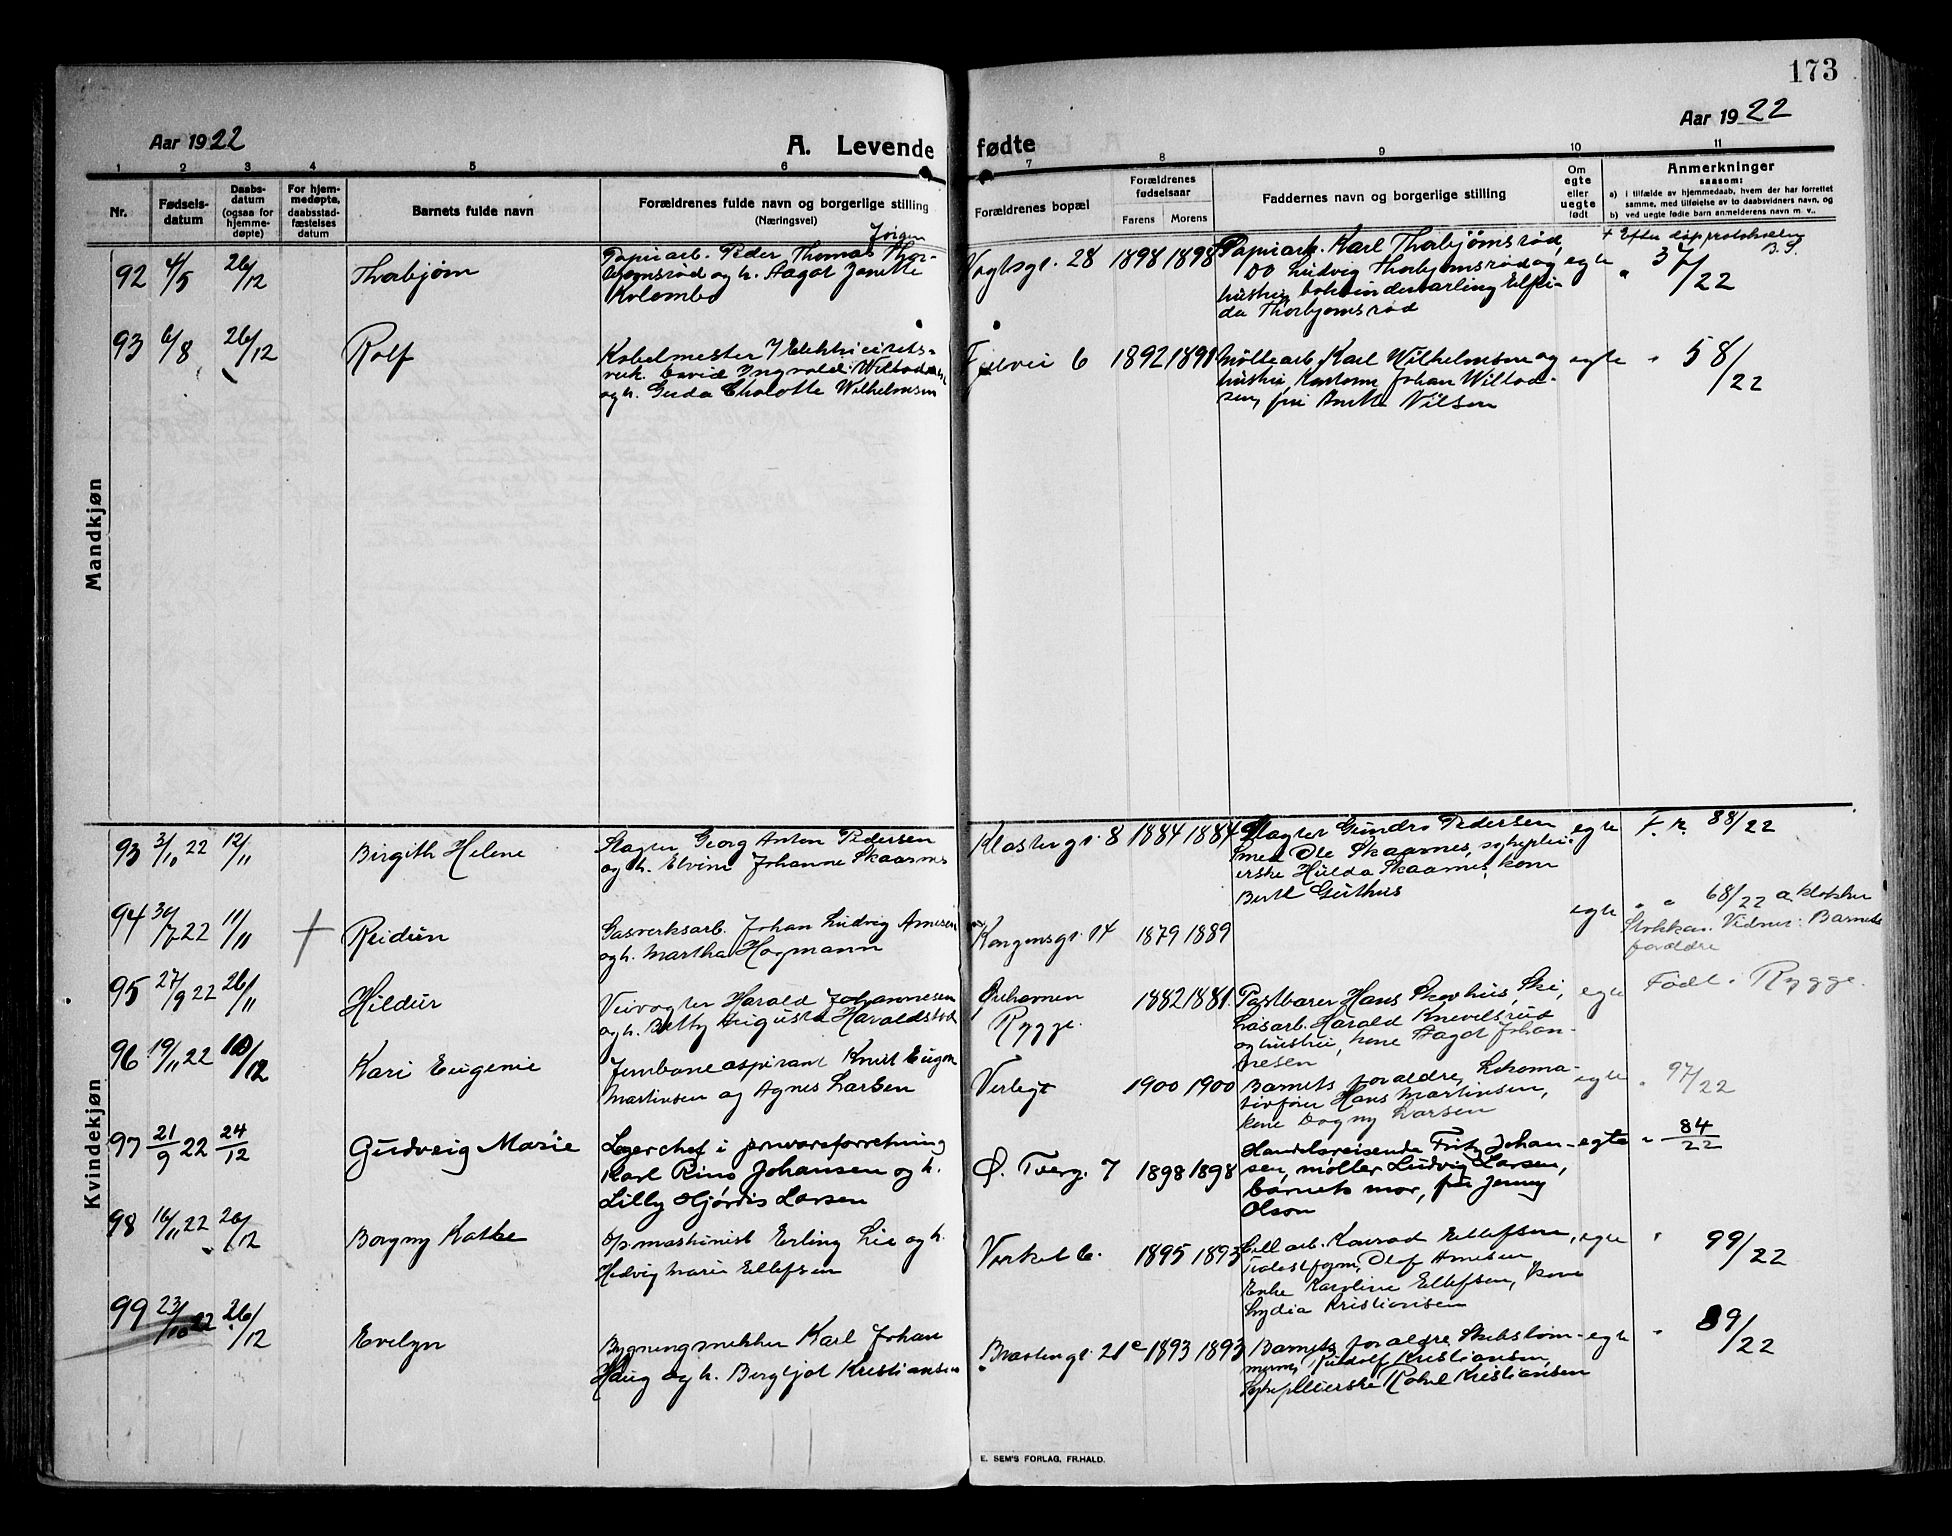 173
Aar 1922
A. Levende fødte
Aar 1922
1 2 3 4 5 6 7 8 9 10 11
Nr.
Fødsels-
datum
Daabs-
datum
(ogsaa for
hjemme-
døpte)
For hjem-
medøpte,
daabsstad-
fæstelses
datum
Barnets fulde navn
Forældrenes fulde navn og borgerlige stilling
(Næringsvei)
Forældrenes bopæl
Forældrenes
fødselsaar
Farens Morens
Faddernes navn og borgerlige stilling
Om
egte
eller
uegte
født
Anmerkninger
saasom:
a) i tilfælde av hjemmedaab, hvem der har forrettet
samme, med tilføielse av to daabsvidners navn, og
b) ved uegte fødte barn anmelderens navn m. v.,
Mandkjøn
92 4/5 26/12 Thorbjørn
Jørgen
Papirarb. Peder Thomas Thor-
bjørnsrød og h. Aagot Janette
Kolembo
Vogtsgt. 28 1898 1898
Papirarb. Karl Thorbjørnsrød,
Do Ludvig Thorbjørnsrød og
hustru, Elfri-
da Thorbjørnsrød
egte
+ Efter døpprotokollen
B. S.
" 37/22
93 6/8 26/12 Rolf
Kabelmester
verk. Ingvald
og h. Gerda Charlotte Wilhelmsen
6 1892 1891
Karl Wilhelmsen og
hustru, Johan
sen, frk Nilsen
egte " 58/22
Kvindekjøn
93 3/10 22 12/11 Birgith Helene
Slagter Georg Anton Pedersen
og h. Elvine Johanne Skaarnes
Klostergt. 8 1884 1884
Slagter Gundro Pedersen
Smed Ole Skaarnes, sykeplei-
erske Hulda Skaarnes, kone
Berthe Guthus
egte F. R. 88/22
94 30/7 22 11/11 + Reidun
Gasverksarb. Johan Ludvig Arnesen
og h. Martha Hagmann
Kongensgt. 14 1879 1889
egte " " 68/22 a klokker
Stokken. Vidner: Barnets
forældre
95 27/9 22 26/11 Hildur
Veivogter Harald Johannesen
og h. Betty Augusta Haraldstad
Ørehavnen
Rygge.
1882 1881.
Postbærer Hans Skovhus, Ski,
Harald Knevelsrud
og hustru, kone Aagot Johan-
nesen
egte Født i Rygge.
96 19/11 22 10/12 Kari Eugenie
Jernbaneaspirant Knut Eugen
Martinsen og Agnes Larsen
Verlegt 1900 1900
Barnets forældre, Lokomo-
tivfører Hans Martinsen,
kone Dagny Larsen
egte " 97/22
97 21/9 22 24/12 Gudveig Marie
Lagerchef i forretning
Karl Rino Johansen og h.
Lilly Hjørdis Larsen
Ø. Tverg. 7 1898 1898
Handelsreisende Fritz Johan-
sen, møller Ludvig Larsen,
barnets mor, fru Jenny
Olson
egte " 84/22
98 16/11 22 26/12 Borgny Kathe
maskinist Erling Lie og h.
Hedvig Marie Ellefsen
Verket 6. 1895 1893
Cell arb. Konrad Ellefsen,
Olaf Arnesen
Enke Karoline Ellefsen, kone
Lydia Kristiansen
egte " 99/22
99 23/10 22 26/12 Evelyn
Bygningsnekker Karl Johan
Haug og h. Bergljot Kristiansen
21c 1893 1893
Barnets forældre, Skibstøm-
merm, Rudolf Kristiansen,
Sykepleierske Rakel Kristiansen
egte " 89/22
E. SEM'S FORLAG, FR.HALD.